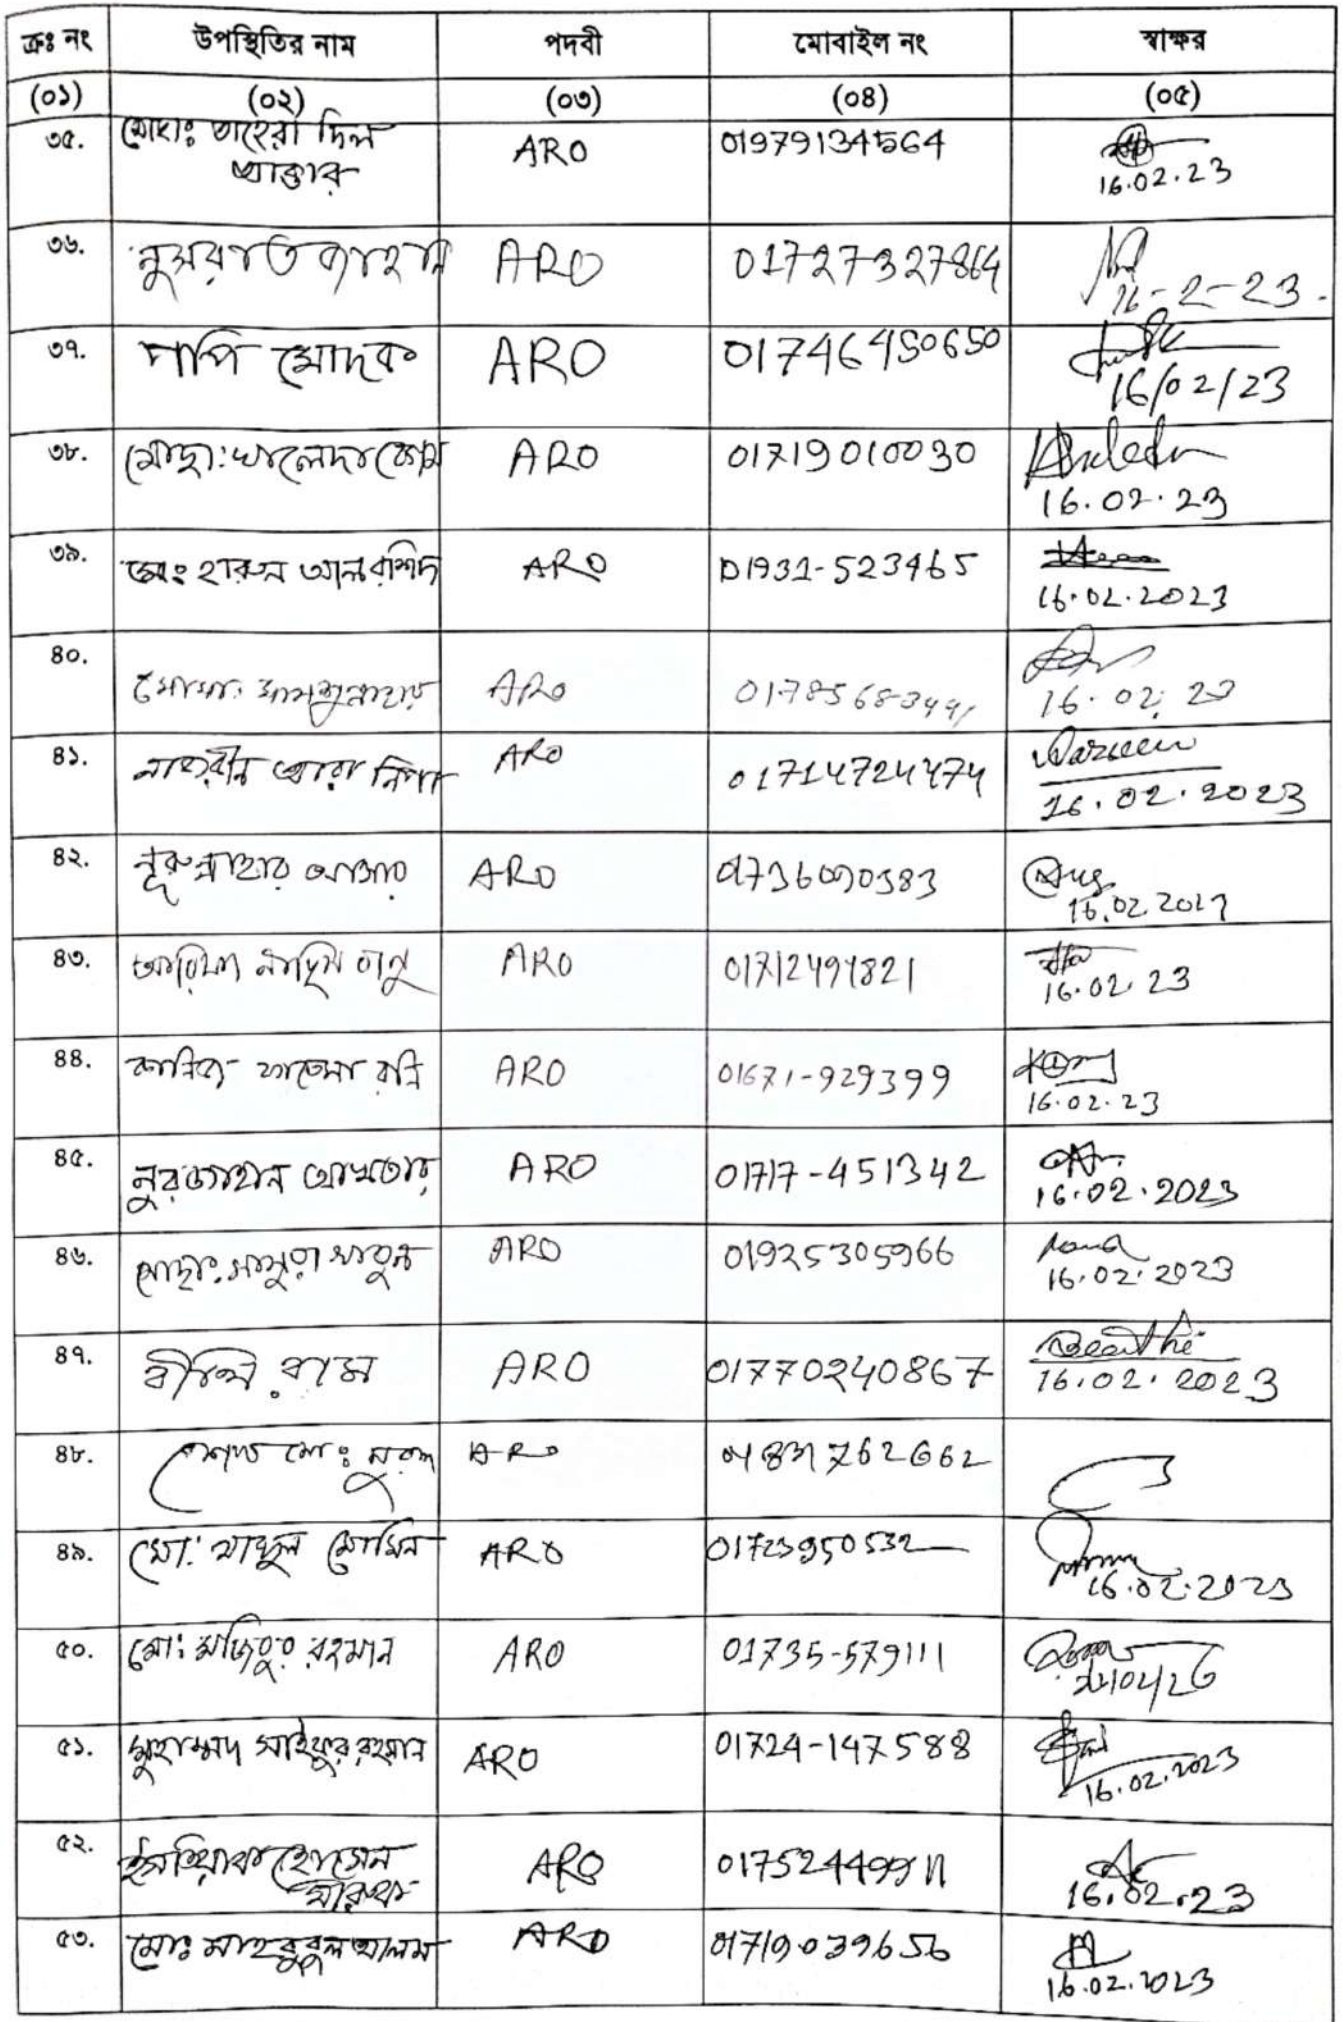 ক্রঃ নং উপস্থিতির নাম পদবী মোবাইল নং স্বাক্ষর
(০১) (০২) (০৩) (০৪) (০৫)
৩৫. মোছাঃ তাহেরা দিল ARO 01979134564
আক্তার 16.02.23
৩৬. নুসরাত জাহান ARO 01727327864
16-2-23.
৩৭. পাপি মোদক ARO 01746450650
16/02/23
৩৮. মোছা: খালেদা বেগম ARO 01719010030 Khaleda
16.02.23
৩৯. মোঃ হারুন আল রশিদ ARO 01931-523465
16.02.2023
৪০. ARO
16.02.23
৪১. নাজরীন আরা নিপা ARO 01714724474 Nazreen
16.02.2023
৪২. নূরুন্নাহার আক্তার ARO
16.02.2017
৪৩. ARO 01712494821
16.02.23
৪৪. কানিজ ফাতেমা রনি ARO 01671-929399
16.02.23
৪৫. নুরজাহান আখতার ARO 01717-451342
16.02.2023
৪৬. মোছা. মাসুরা খাতুন ARO 01925305966
16.02.2023
৪৭. বীথি রায় ARO 01770240867 Beethi
16.02.2023
৪৮. মোঃ নুরুল ARO
৪৯. মো: আব্দুল মোমিন ARO 01723950532
16.02.2023
৫০. মোঃ মজিবুর রহমান ARO 01735-579111
৫১. মুহাম্মদ সাইফুর রহমান ARO 01724-147588
16.02.2023
৫২. ইসতিয়াক হোসেন ARO
ফারুক 16.02.23
৫৩. মোঃ মাহবুবুল আলম ARO 01719039656
16.02.2023